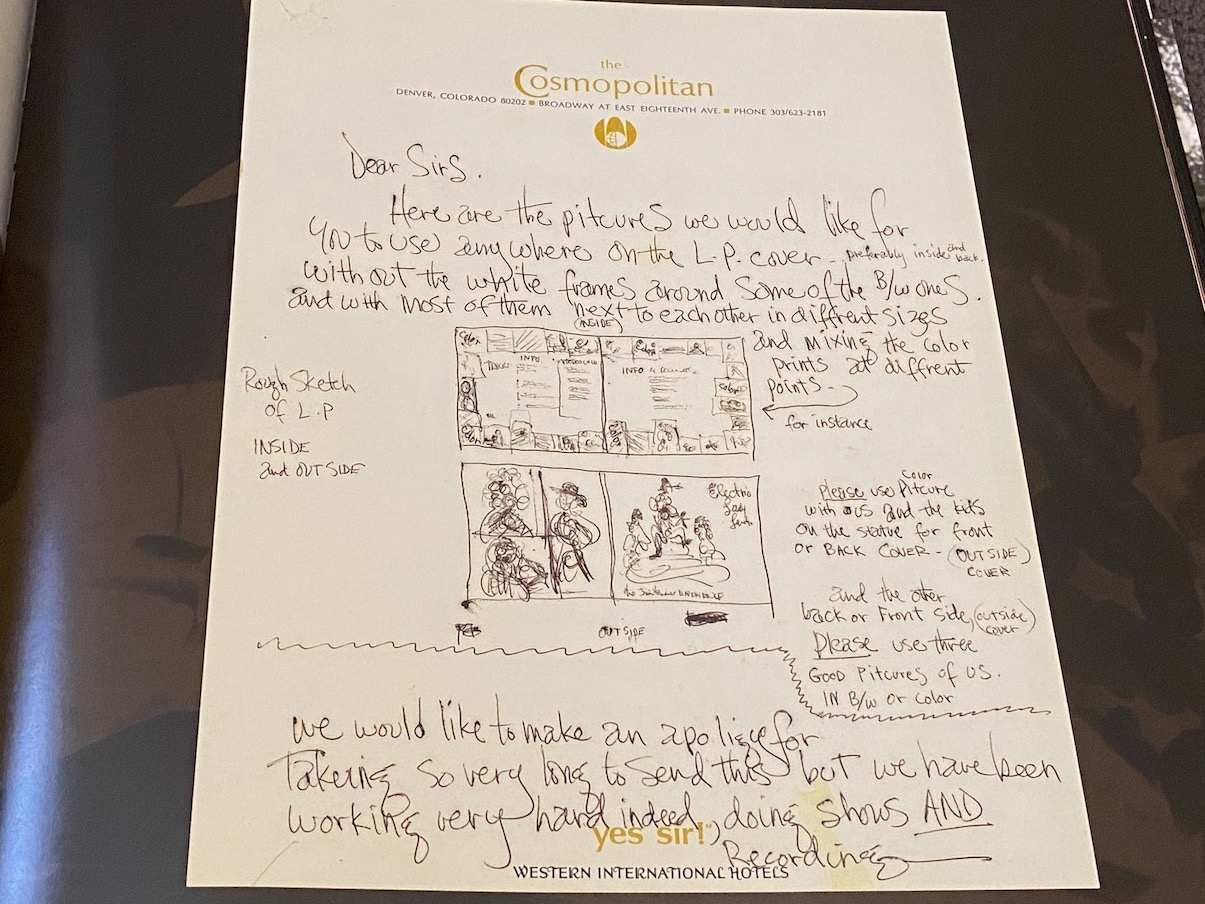 the
Cosmopolitan
DENVER, COLORADO 80202 ■ BROADWAY AT EAST EIGHTEENTH AVE. ■ PHONE 303/623-2181
Dear Sirs.
Here are the pitcures we would like for
you to use anywhere on the L.P. cover - preferably inside and back.
without the white frames around some of the B/W ones.
and with most of them next to each other in diffrent sizes
(INSIDE)
and mixing the color
prints at diffrent
points -
for instance
Rough Sketch
of L.P
INSIDE
and OUTSIDE
Color
INFO
INFO
Electric
Lady
Land
OUTSIDE
Color
Please use Pitcure
with us and the kids
on the statue for front
or BACK COVER - (OUTSIDE)
COVER
and the other
back or Front side, (outside
cover)
Please use three
GOOD Pitcures of US.
IN B/W or color
We would like to make an apoligy for
Takeing so very long to send this but we have been
working very hard indeed, doing shows AND
Recording
yes sir!
WESTERN INTERNATIONAL HOTELS